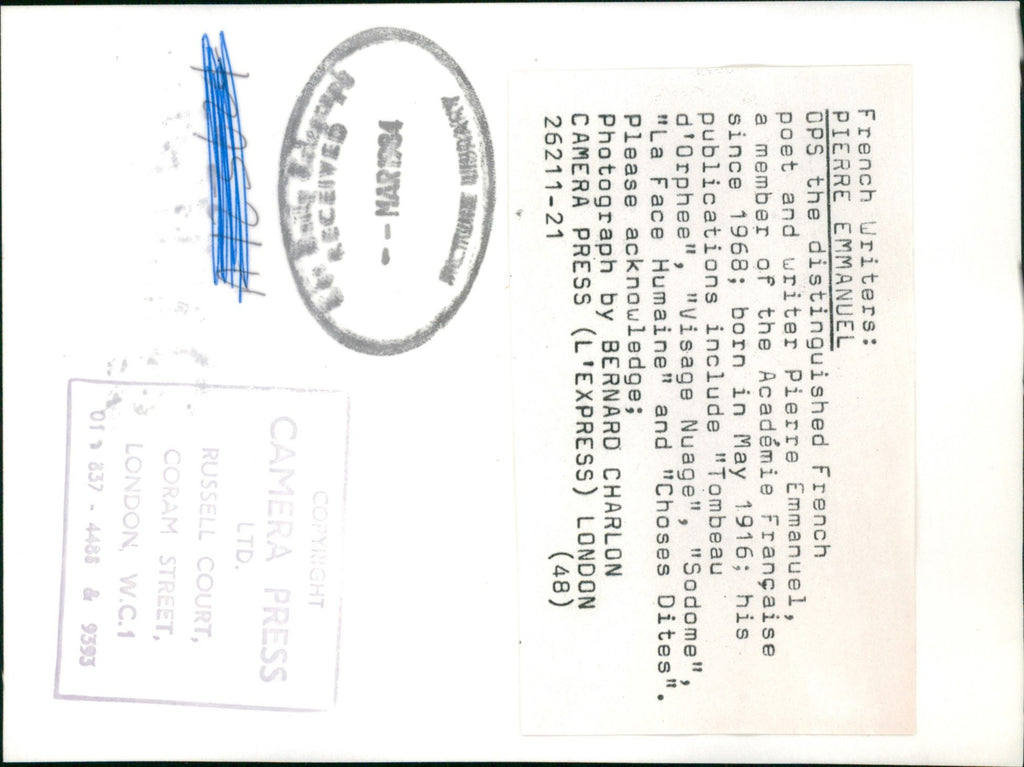 French Writers:
PIERRE EMMANUEL
OPS the distinguished French
poet and writer Pierre Emmanuel,
a member of the Académie Française
since 1968; born in May 1916; his
publications include "Tombeau
d'Orphee", "Visage Nuage", "Sodome",
"La Face Humaine" and "Choses Dites".
Please acknowledge;
Photograph by BERNARD CHARLON
CAMERA PRESS (L'EXPRESS) LONDON
26211-21 (48)
LIBRARY
- - MAR 1984
RECEIVED
COPYRIGHT
CAMERA PRESS
LTD.
RUSSELL COURT,
CORAM STREET,
LONDON, W.C.1
01 837 - 4488 & 9393